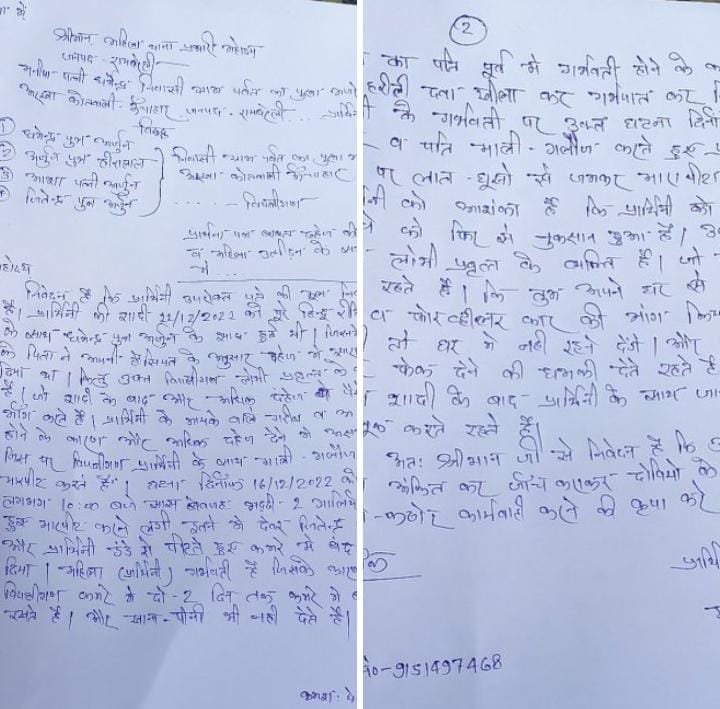 श्रीमान महिला थाना प्रभारी महोदय
जनपद - रायबरेली
पत्नी धर्मेन्द्र निवासी ग्राम पर्वत का पुरवा
कोतवाली ऊँचाहार जनपद - रायबरेली ....
विरुद्ध
धर्मेन्द्र पुत्र अर्जुन
अर्जुन पुत्र हीरालाल
आशा पत्नी अर्जुन
जितेन्द्र पुत्र अर्जुन
निवासी ग्राम पर्वत का पुरवा
कोतवाली ऊँचाहार
..... - विपक्षीगण
प्रार्थना पत्र बाबत दहेज की
व महिला उत्पीड़न के
में ....
निवेदन है कि प्रार्थिनी उपरोक्त पते की
है। प्रार्थिनी की शादी /12/2022 को पूरे हिन्दू
के साथ धर्मेन्द्र पुत्र अर्जुन के साथ हुई थी।
के पिता ने अपनी हैसियत के अनुसार दहेज
दिया था। किन्तु उक्त विपक्षीगण लोभी
है। जो शादी के बाद और अधिक दहेज
मांग करते हैं। प्रार्थिनी के मायके वाले गरीब व
होने के कारण और अधिक दहेज देने में
जिस पर विपक्षीगण प्रार्थिनी के साथ गाली - गलौज
मारपीट करते हैं। घटना दिनांक 16/12/2022 को
लगभग 10:00 बजे सास भद्दी - 2 गालियाँ
हुए मारपीट करने लगी इतने में देवर जितेन्द्र
और प्रार्थिनी डंडे से पीटते हुए कमरे में बंद
दिया। महिला (प्रार्थिनी) गर्भवती है जिसके कारण
विपक्षीगण कमरे में दो - 2 दिन तक कमरे में
रखते हैं। और खाना - पानी भी नहीं देते हैं।
क्रमशः पे
2
का पति पूर्व में गर्भवती होने के
दवा खीला कर गर्भपात कर
के गर्भवती पर उक्त घटना
व पति गाली - गलौज करते हुए
पर लात - घूसो से जमकर मारा पीटा
को आशंका है कि प्रार्थिनी को
को फिर से नुकसान हुआ है।
लोभी प्रवृत्त के व्यक्ति है। जो
रहते हैं। कि तुम अपने घर से
व फोरव्हीलर कार की मांग
तो घर में नही रहने देंगे। और
फेक देने की धमकी देते रहते हैं
शादी के बाद प्रार्थिनी के साथ
करते रहते हैं।
अतः श्रीमान जी से निवेदन है कि
अंकित कर जाँच कराकर दोषियों के
कठोर कार्यवाही करने की कृपा करें
9151497468